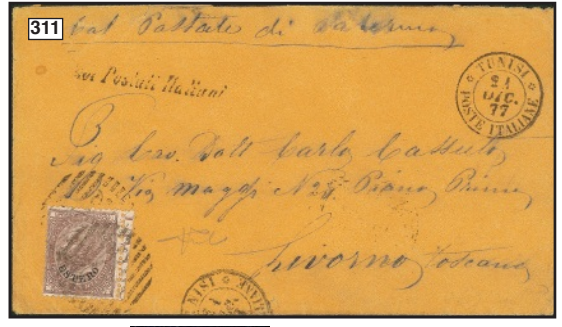 311
Col Postale di Palermo
Postali Italiani
TUNISI
21
DIC.
77
POSTE ITALIANE
Sig Cav. Dott Carlo Cassuto
Via maggi N 25 Piano Primo
ESTERO
Livorno Toscana